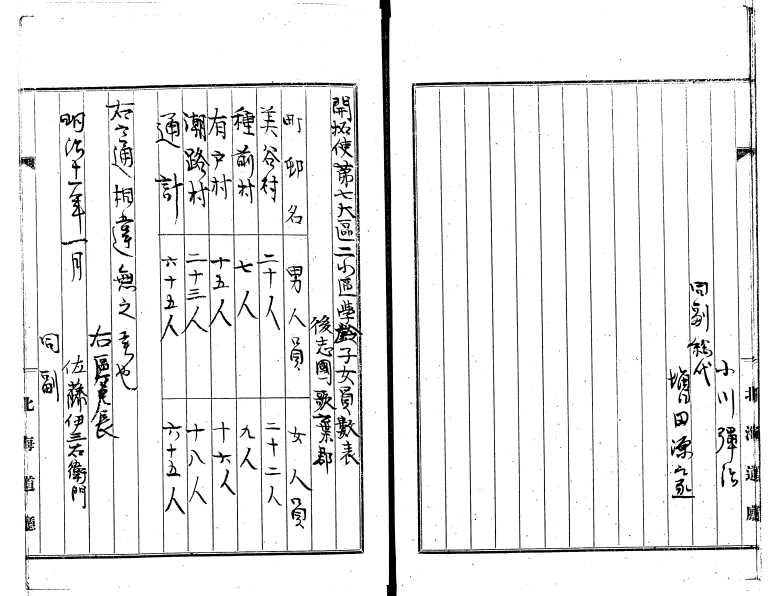 開拓使第七大區二小區学齢子女員數表
後志國歌棄郡
町邨名 男人員 女人員
美谷村 二十人 二十二人
種前村 七人 九人
有戸村 十五人 十六人
潮路村 二十三人 十八人
通計 六十五人 六十五人
右之通相違無之候也
右區長
明治十一年一月 佐藤伊三右衛門
同副
北海道廳
小川彈治
同副総代
田源
北海道廳